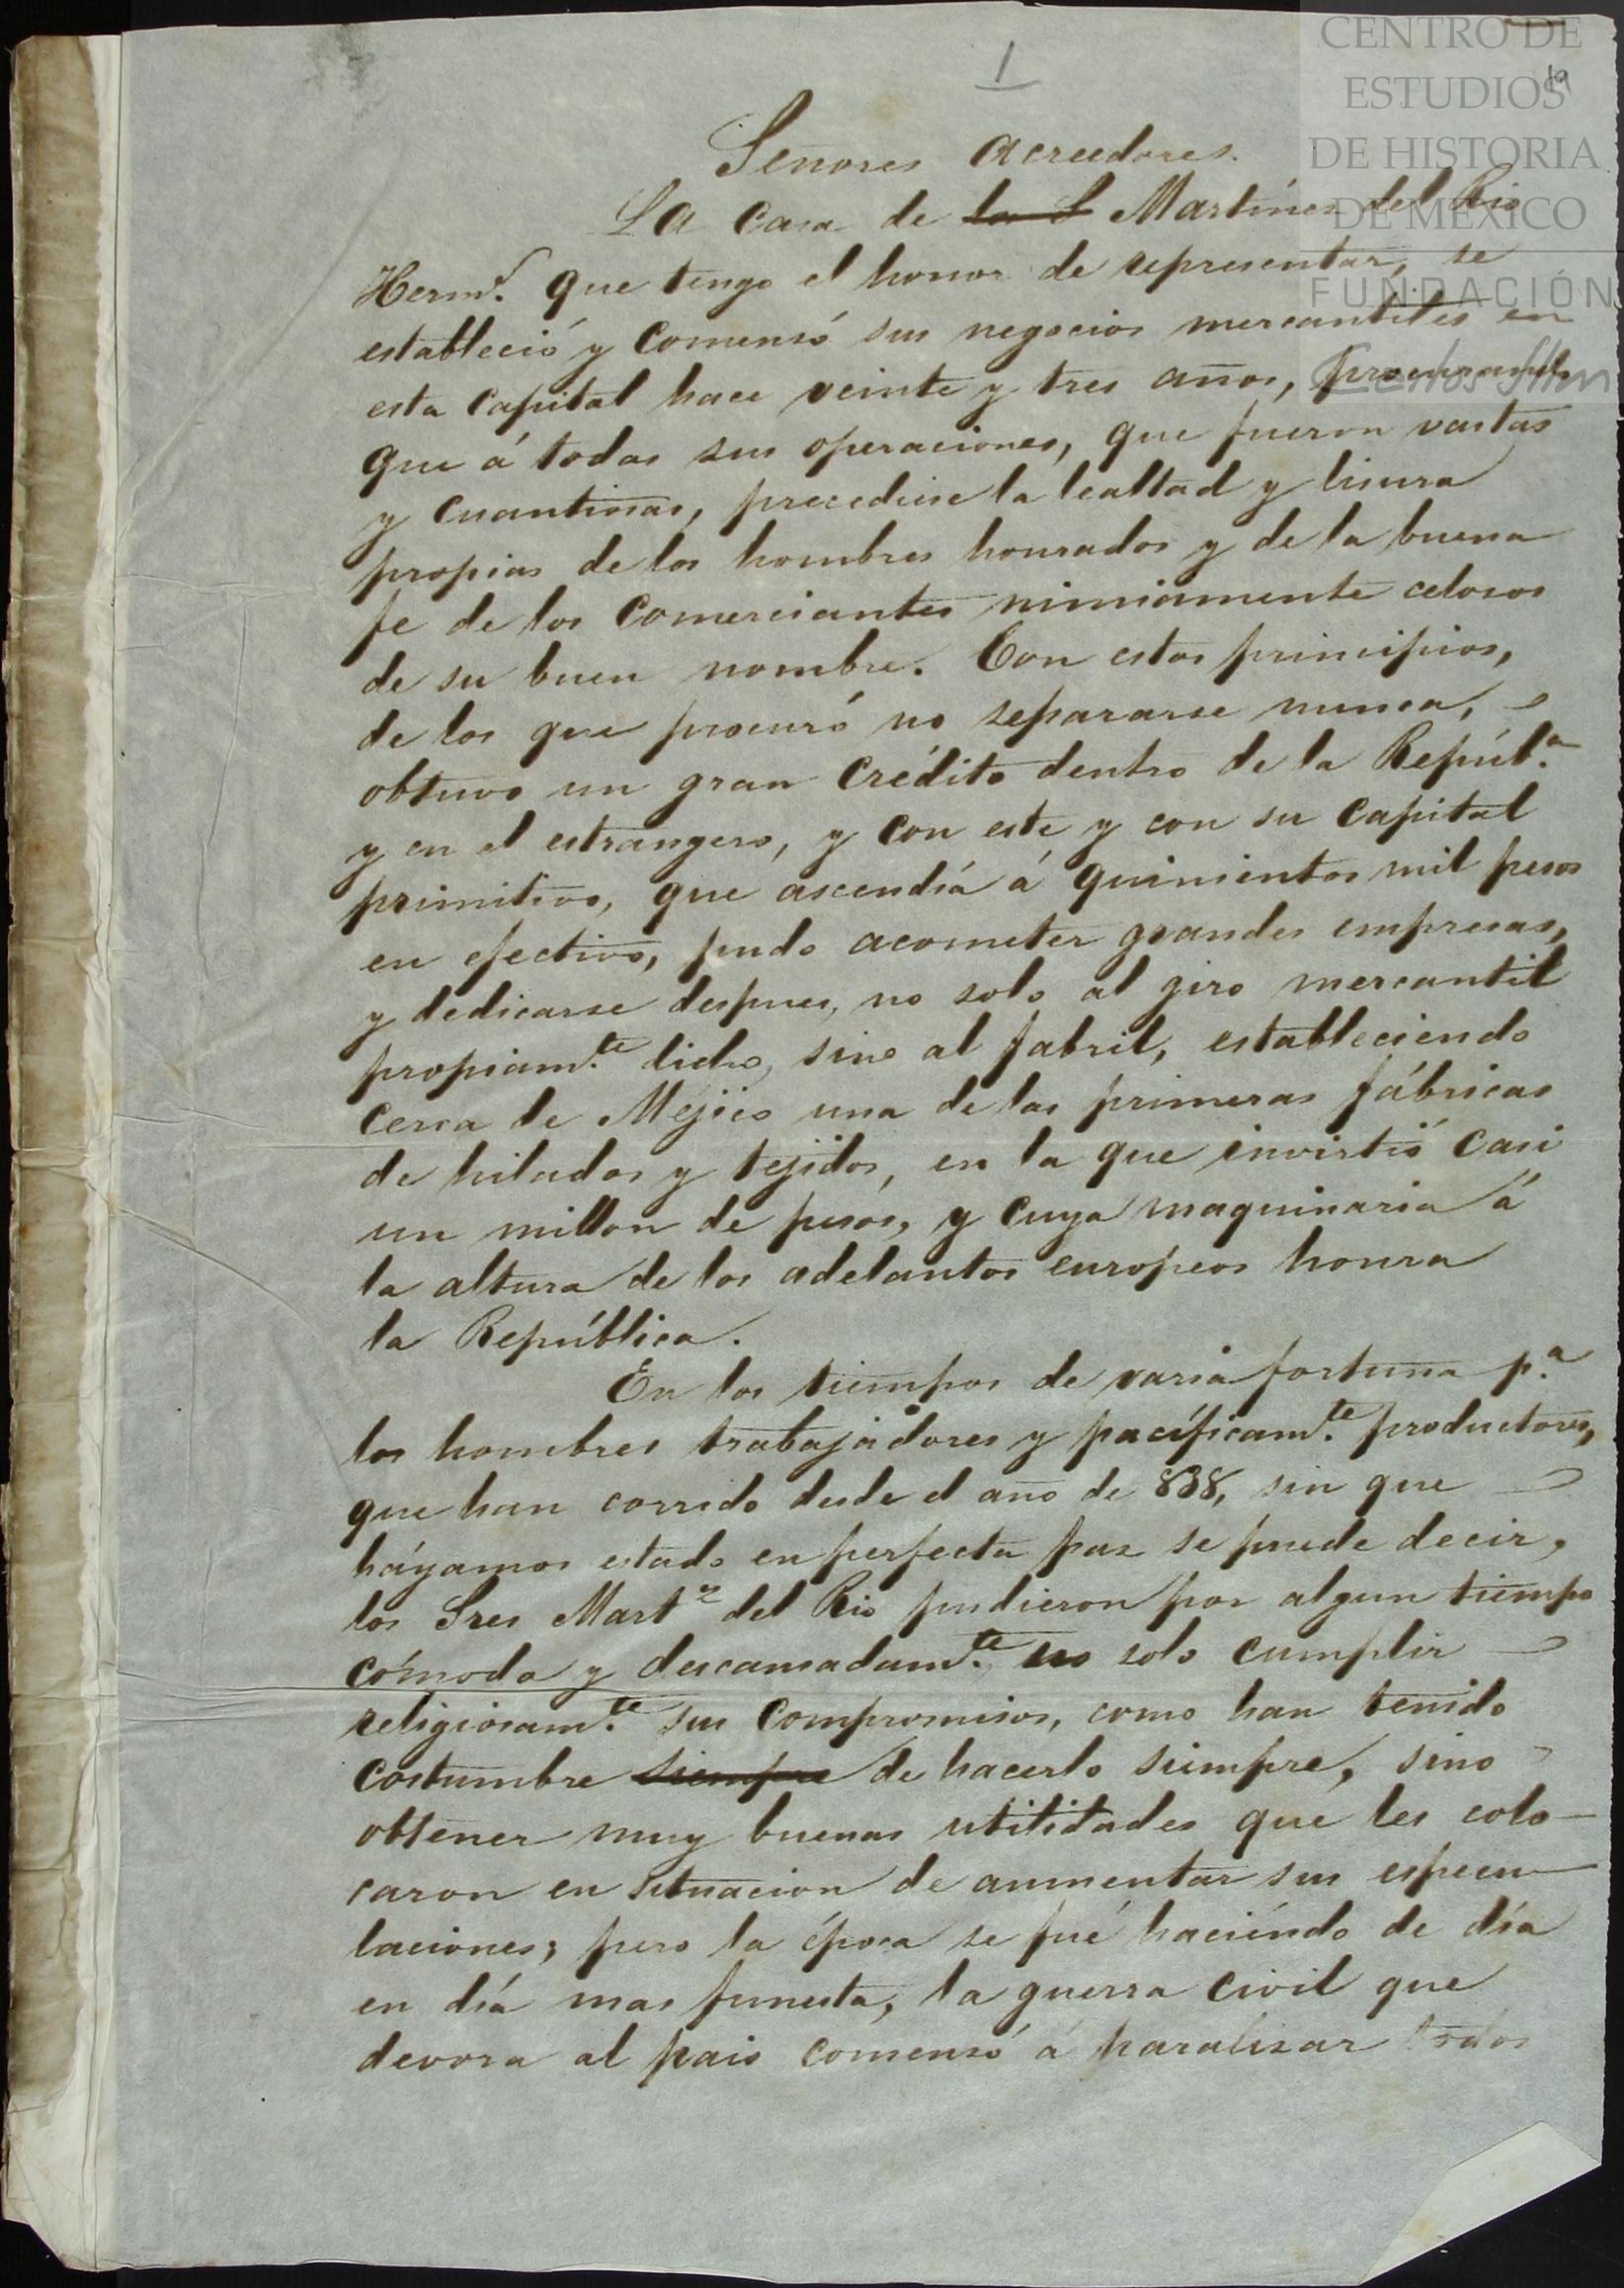 1
19
CENTRO DE
ESTUDIOS
DE HISTORIA
DE MÉXICO
FUNDACIÓN
Carlos Slim
Señores Acreedores.
La Casa de la S Martínez del Rio
Herm.s que tengo el honor de representar, se
estableció y comensó sus negocios mercantiles en
esta Capital hace veinte y tres años, procurando
que á todas sus operaciones, que fueron vastas
y cuantiosas, precediese la lealtad y lisura
propias de los hombres honrados y de la buena
fe de los comerciantes nimiamente celosos
de su buen nombre. Con estos principios,
de los que procuró no separarse nunca,
obtuvo un gran crédito dentro de la Repúb.a
y en el estrangero, y con este y con su capital
primitivo, que ascendía á quinientos mil pesos
en efectivo, pudo acometer grandes empresas,
y dedicarse despues, no solo al giro mercantil
propiam.te dicho, sino al fabril, estableciendo
cerca de Méjico una de las primeras fábricas
de hilados y tejidos, en la que invirtió casi
un millon de pesos, y cuya maquinaria á
la altura de los adelantos europeos honra
la República.
En los tiempos de varia fortuna p.a
los hombres trabajadores y pacíficam.te productores,
que han corrido desde el año de 838, sin que
háyamos estado en perfecta paz se puede decir,
los Sres Mart.z del Rio pudieron por algun tiempo
cómoda y descansadam.te no solo cumplir
religiosam.te sus compromisos, como han tenido
costumbre siempre de hacerlo siempre, sino
obtener muy buenas utilidades que les colo-
caron en situacion de aumentar sus especu-
laciones; pero la época se fué haciéndo de día
en día mas funesta, la guerra civil que
devora al pais comensó á paralisar todos